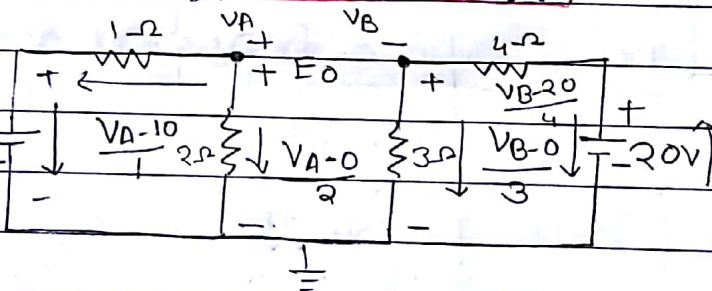 1Ω VA VB 4Ω
+ −
+ + E0 + VB-20/4 +
VA-10/1 2Ω VA-0/2 3Ω VB-0/3 -20V
− − −